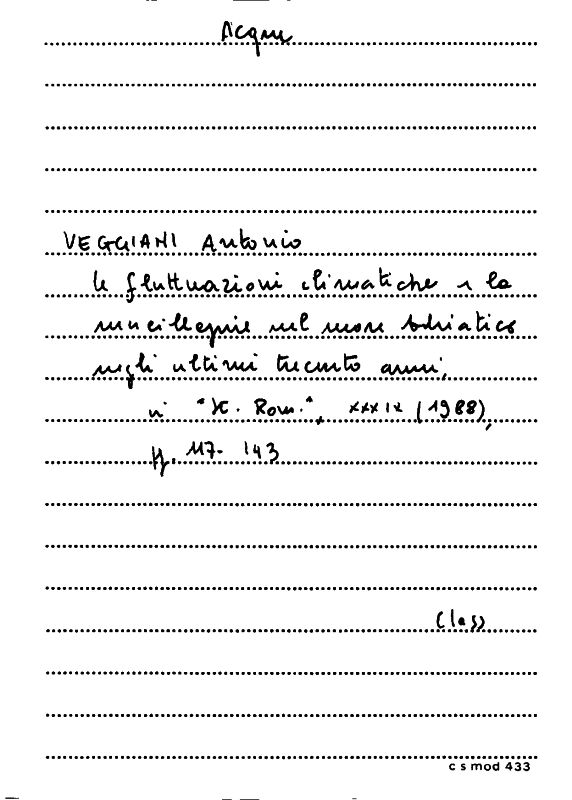 Acque
VEGGIANI Antonio
le fluttuazioni climatiche e la
mucillagine nel mare Adriatico
negli ultimi trecento anni,
in "St. Rom.", XXXIX (1988),
pp. 117-143
Class
c s mod 433